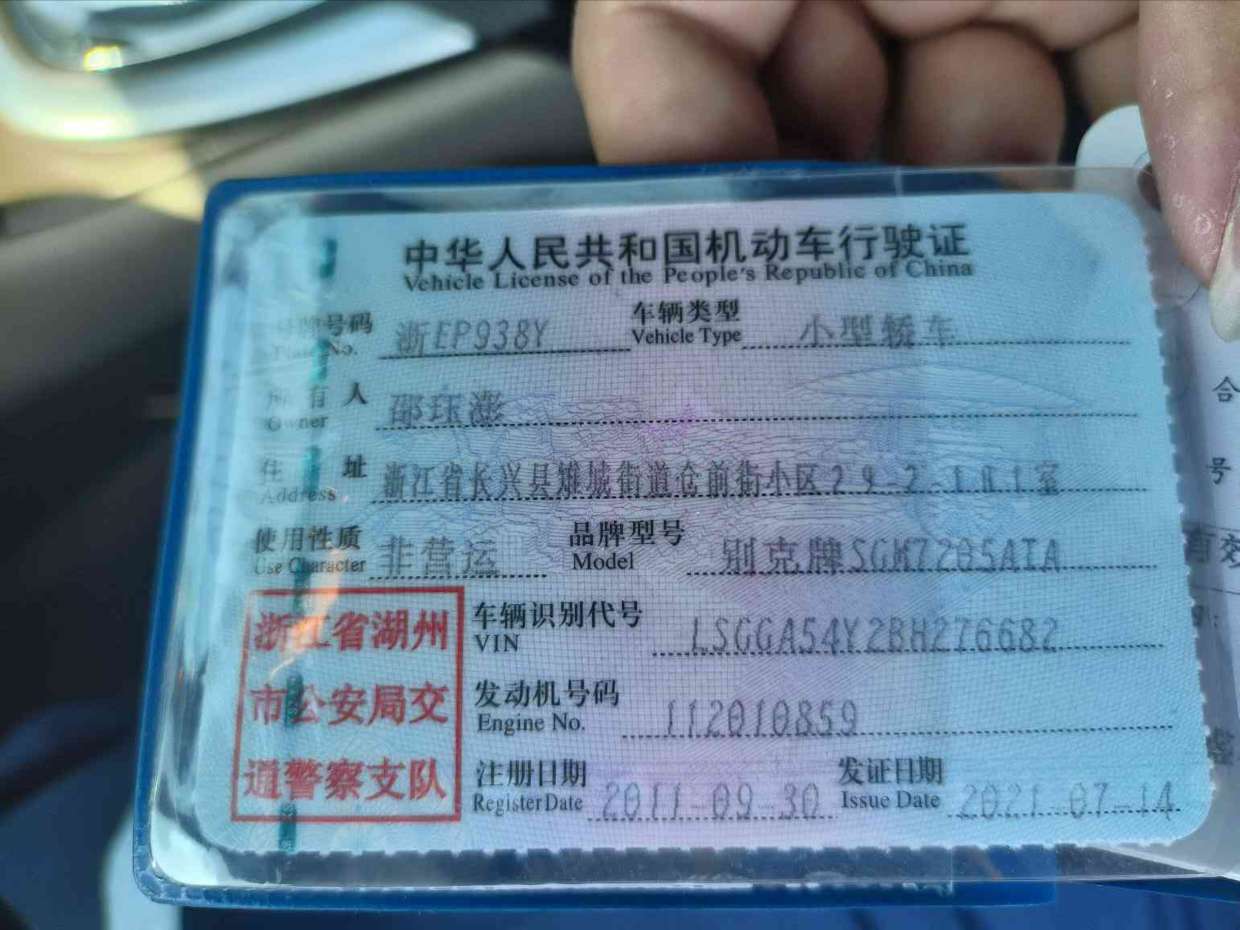 中华人民共和国机动车行驶证
Vehicle License of the People's Republic of China
号牌号码 浙EP938Y 车辆类型 小型轿车
Plate No. Vehicle Type
所有人 邵珏澎
Owner
住址 浙江省长兴县雉城街道仓前街小区29-2-101室
Address
使用性质 非营运 品牌型号 别克牌SGM7205ATA
Use Character Model
浙江省湖州
市公安局交
道警察支队
车辆识别代号 LSGGA54Y2BH276682
VIN
发动机号码 112010859
Engine No.
注册日期 2011-09-30 发证日期 2021-07-14
Register Date Issue Date
合
号
有效